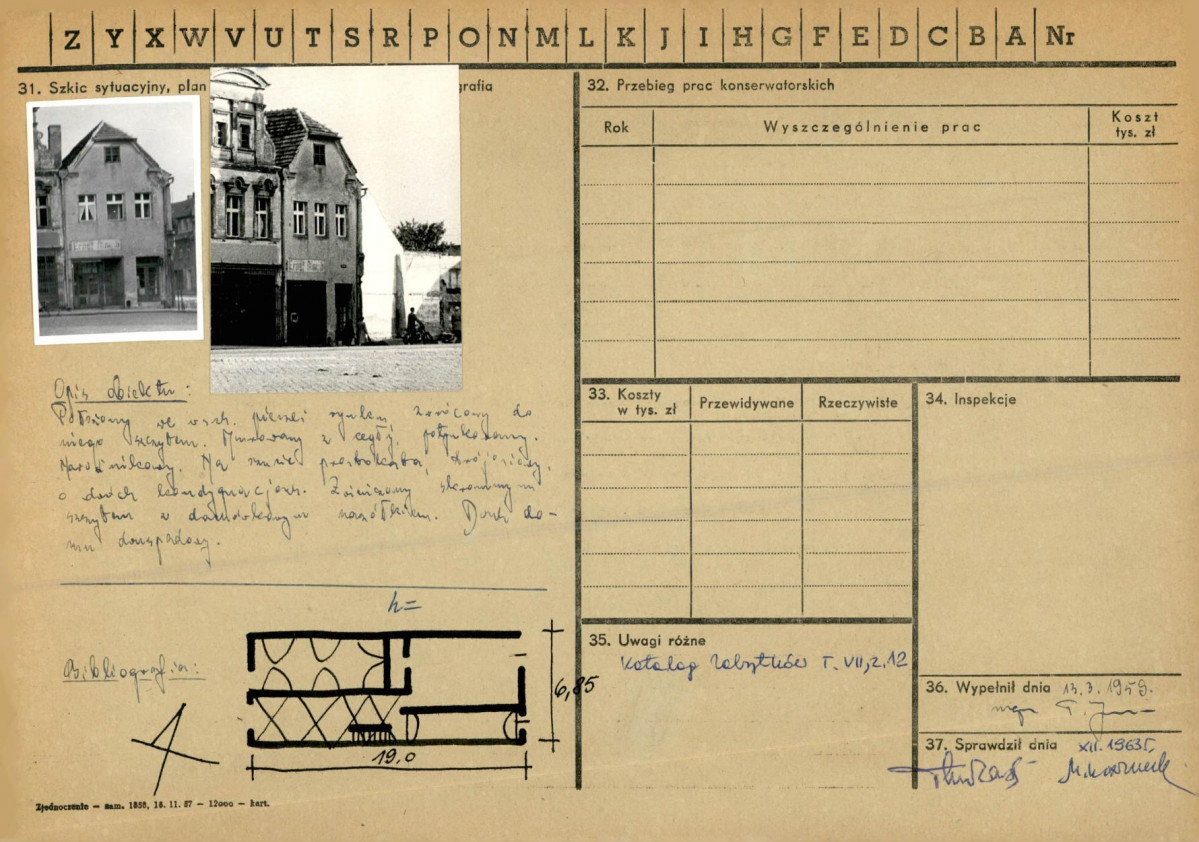 Z Y X W V U T S R P O N M L K J I H G F E D C B A Nr
31. Szkic sytuacyjny, plan grafia
Opis obiektu:
Położony we wsch. pierzei rynku, zwrócony do
niego szczytem. Murowany z cegły, potynkowany.
Narożnikowy. Na rzucie prostokąta, trójosiowy,
o dwóch kondygnacjach. Zwieńczony skromnym
szczytem z dachówkowym naczółkiem. Dach do-
mu dwuspadowy.
h=
Bibliografia:
6,85
19,0
Zjednoczenie — zam. 1858, 18. 11. 57 — 12000 — kart.
32. Przebieg prac konserwatorskich
Rok Wyszczególnienie prac Koszt tys. zł
33. Koszty w tys. zł Przewidywane Rzeczywiste
34. Inspekcje
35. Uwagi różne
Katalog Zabytków T. VII, z. 12
36. Wypełnił dnia 13.3.1959.
mgr
37. Sprawdził dnia XII. 1963 r.